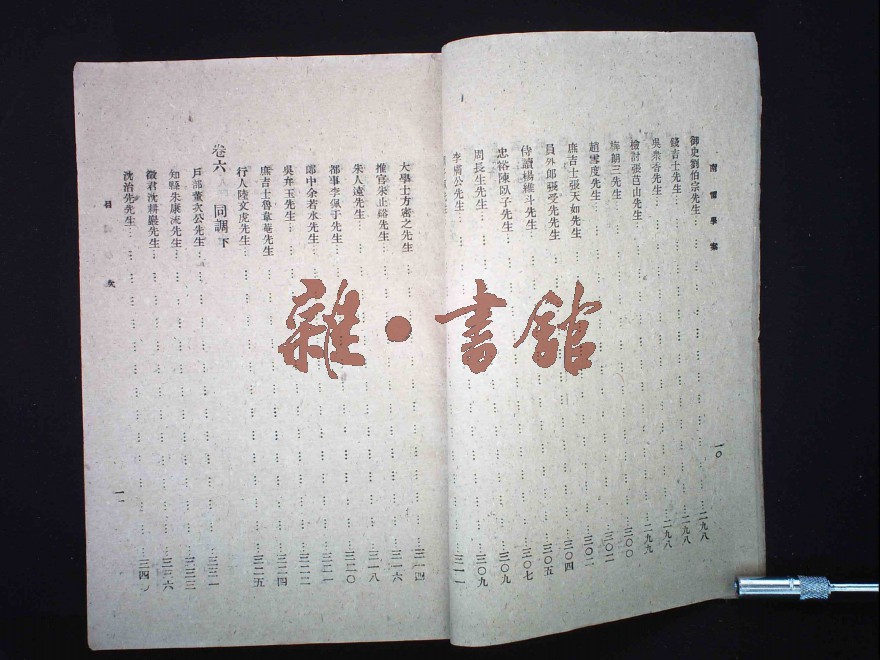 南雷學案
御史劉伯宗先生…………二九八
錢吉士先生…………二九八
吳衆香先生…………二九八
檢討張芑山先生…………二九九
梅朗三先生…………三〇〇
趙雪度先生…………三〇二
庶吉士張天如先生…………三〇四
員外郎張受先先生…………三〇五
侍讀楊維斗先生…………三〇七
忠裕陳臥子先生…………三〇九
周長生先生…………三〇九
一〇
大學士方密之先生…………三一四
推官朱止谿先生…………三一六
朱人遠先生…………三一八
都事李佩于先生…………三二〇
郎中余若水先生
吳弁玉先生
庶吉士魯韋菴先生…………三二四
行人陸文虎先生…………三二五
卷六 同調下
戶部董次公先生
知縣朱康流先生
徵君沈耕巖先生…………三三六
沈治先先生…………三四
目 次
雜·書館